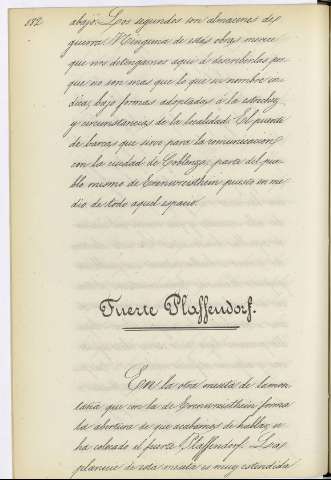 182
abajo. Los segundos son almacenes de
guerra. Ninguna de estas obras merece
que nos detengamos aqui á describirlas por
que no son mas que lo que su nombre in
dica, bajo formas adaptadas á la estrechez
y circunstancias de la localidad. El puente
de barcas que sirve para la comunicacion
con la ciudad de Coblenza, parte del pue
blo mismo de Erenwreisthein puesto en me
dio de todo aquel espacio.
Fuerte Plaffendorf.
En la otra meseta de la mon
taña que con la de Erenwreisthein forma
la abertura de que acabamos de hablar, se
ha colocado el fuerte Plaffendorf. La es
planicie de esta meseta es muy estendida